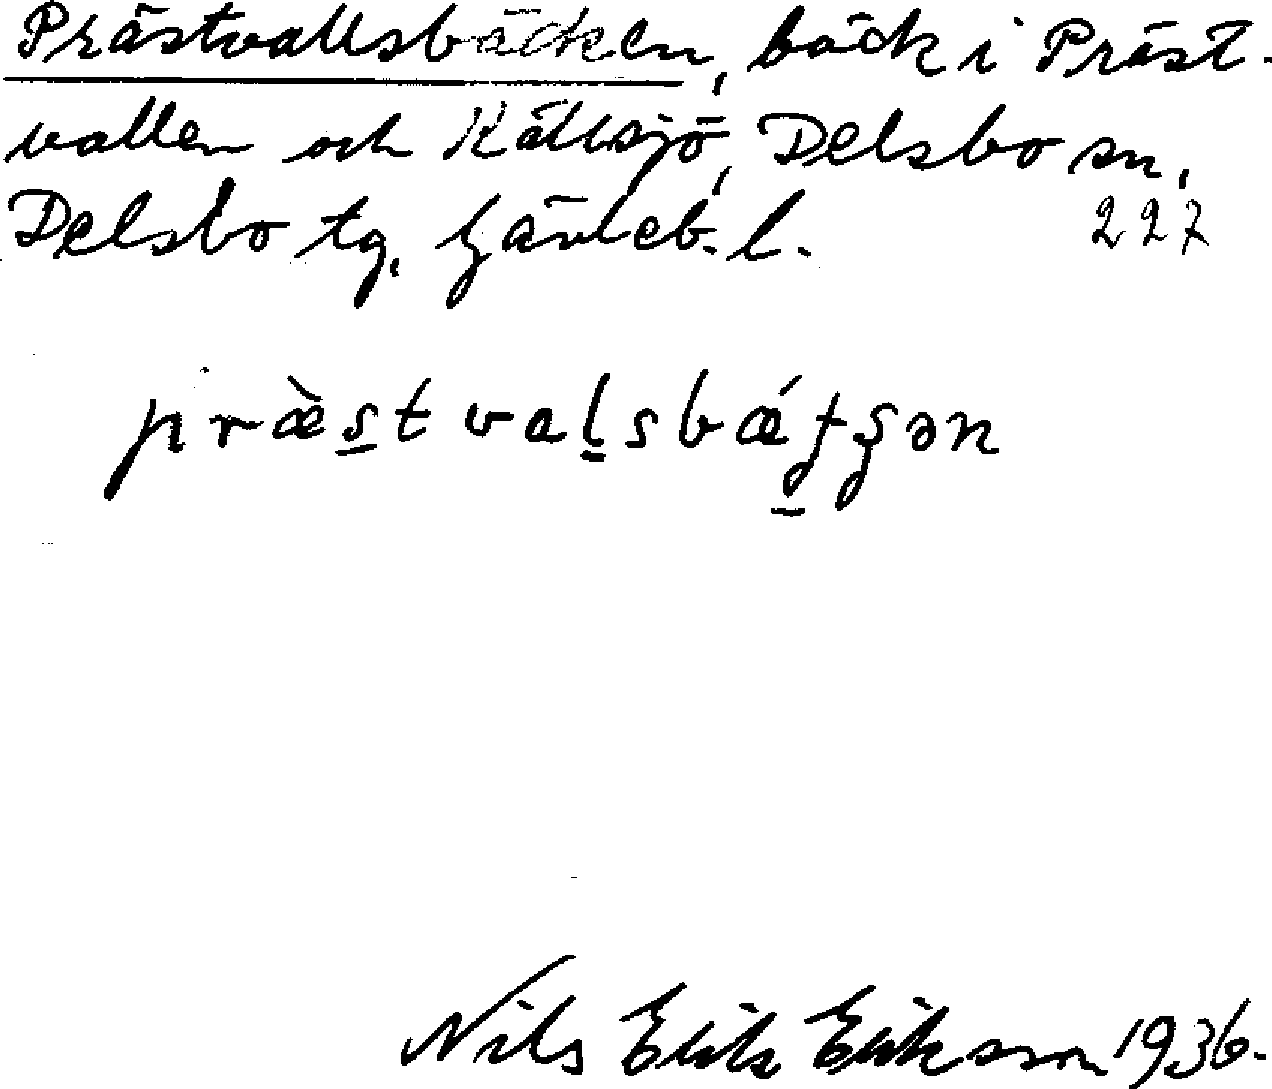 Prästvallsbäcken, bäck i Präst-
vallen och Källsjö, Delsbo sn,
Delsbo tg, Gävleb. l.
227
præ̀s̲tval̲sbǽt̲ʂən
Nils Erik Eriksson 1936.